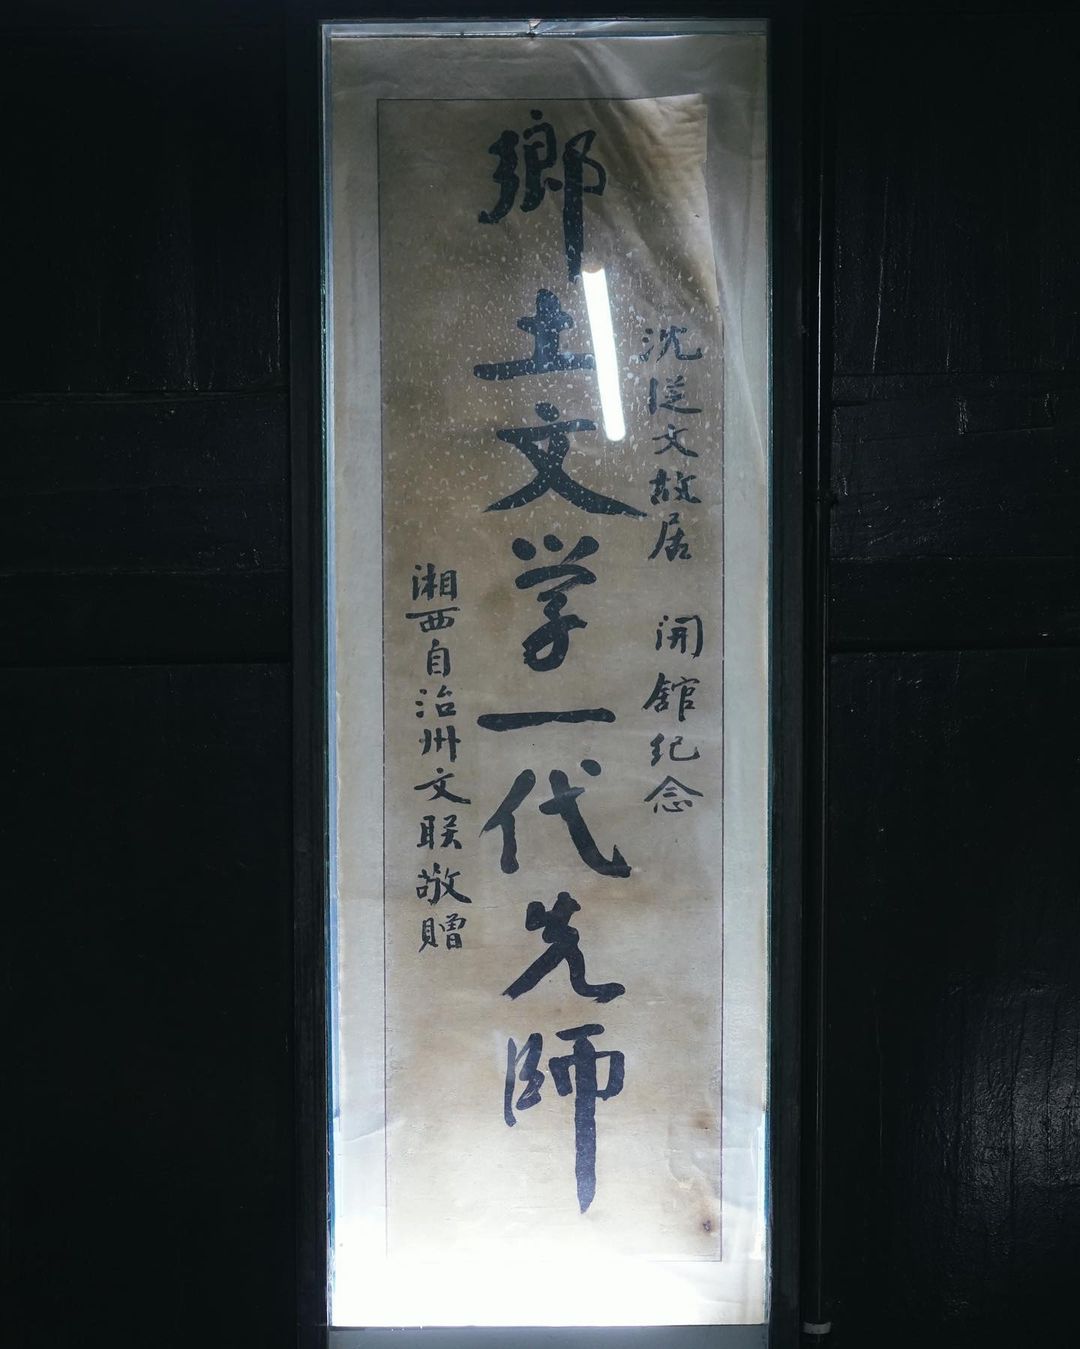 沈從文故居 開館纪念
鄉土文学一代先師
湘西自治州文联敬赠